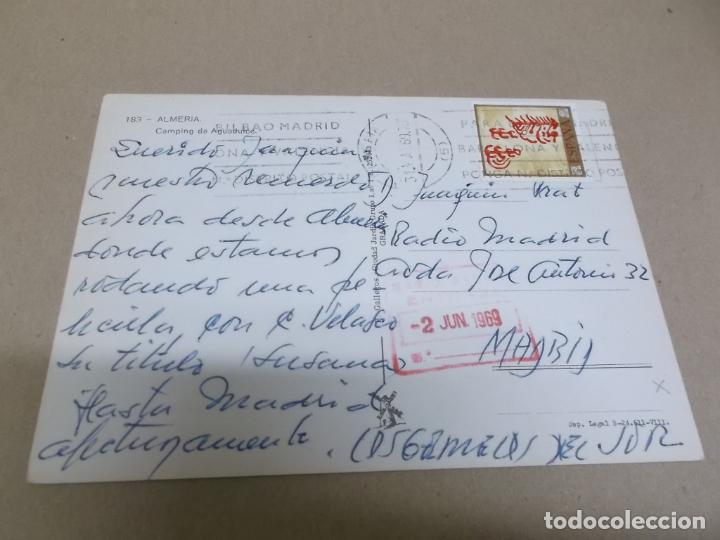 183 - ALMERIA.
Camping de Aguadulce.
BILBAO MADRID
PARA MADRID
BARCELONA Y VALEN
PONGA Nº DISTRITO POS
Querido Joaquin
nuestro recuerdo
ahora desde Almeria
donde estamos
rodando una pe
licula, con C. Velasco
Su titulo (Susana)
Hasta Madrid
afectuosamente. LOS GEMELOS DEL SUR
D. Joaquin Prat
Radio Madrid
Avda José Antonio 32
MADRID
-2 JUN. 1969
GRANADA
ESPAÑA
Dep. Legal B-24.611-VIII.
X
todocoleccion
todocoleccion.net